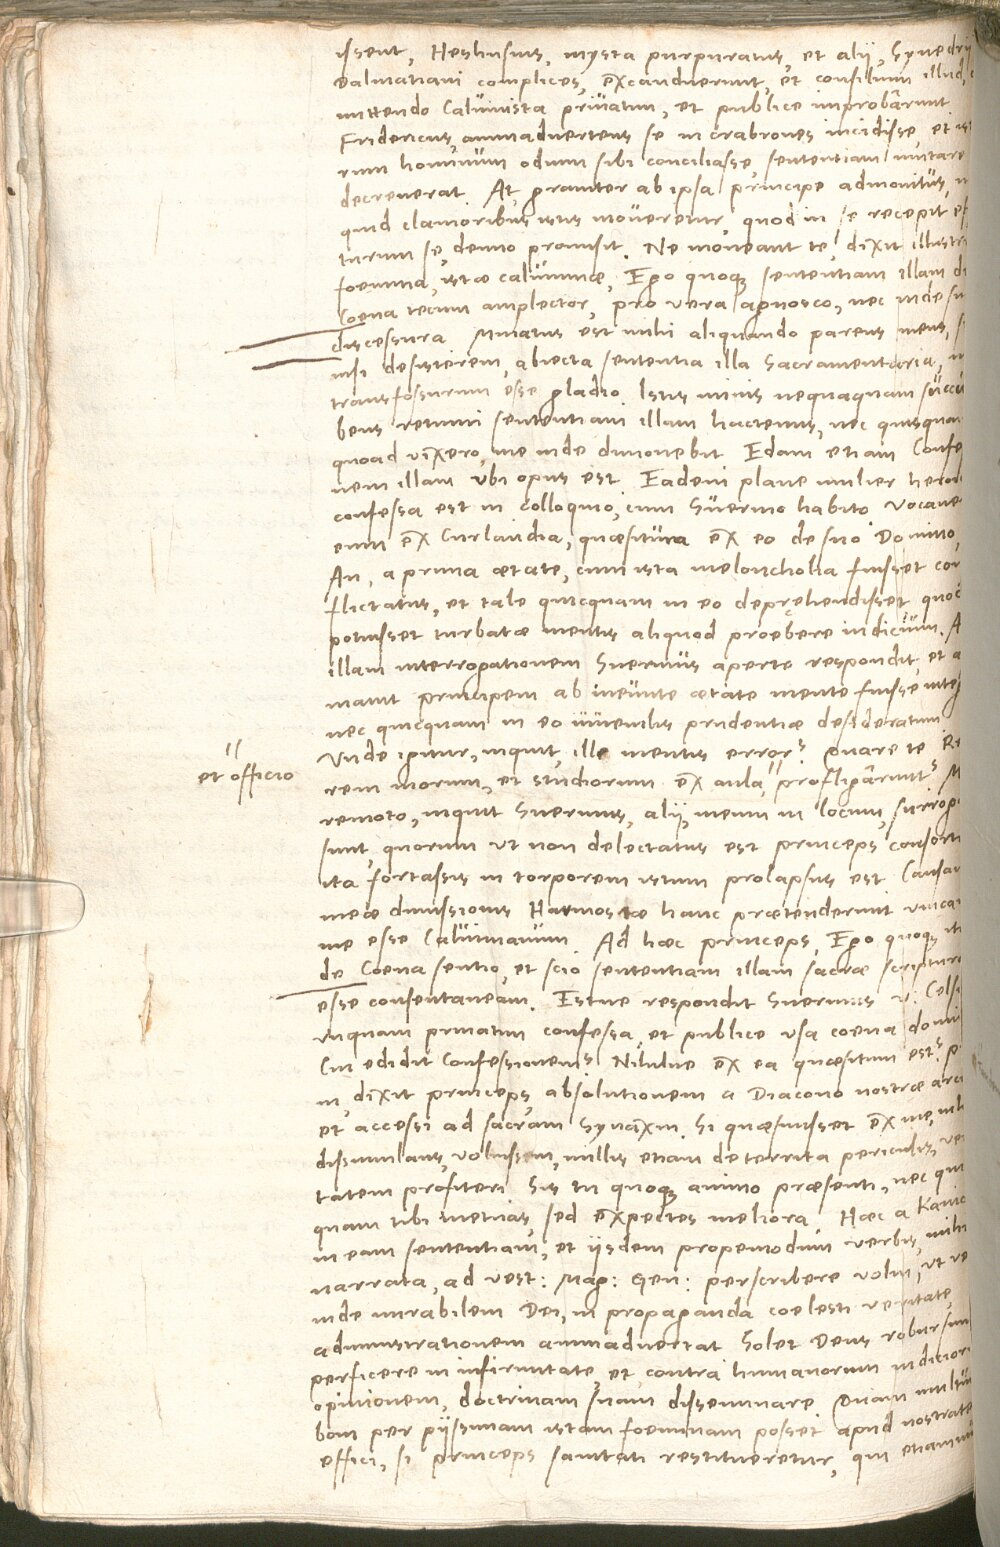 issent, Heshusius, mysta purpuratus, et alij, Synedrij
Dalmatiani complices, excanduerunt, et consilium illud,
mittendo Caluinista priuatim, et publice improbârunt
Fridericus, animaduertens se in crabrones incidisse, et
rum hominum odium sibi conciliasse, sententiam mutare
decreuerat. At, grauiter ab ipsa principe admonitus,
quid clamoribus istis moueretur, quod in se recepit,
turum se, denuo promisit. Ne moueant te, dixit illustri
foemina, istæ calumniæ, Ego quoque sententiam illam
Coena tecum amplector, pro vera agnosco, nec inde
discessura. Minatus est mihi aliquando parens meus,
nisi desisterem, abiecta sententia illa Sacramentaria,
transfossurum esse gladio. Istis minis nequaquam
bens retinui sententiam illam hactenus, nec quisquam
quoad vixero, me inde dimouebit. Edam etiam Confe
nem illam vbi opus est. Eadem plane mulier heroi
confessa est in colloquio, cum Suerino habito. Vocaue
eum ex Curlandia, quæsitura ex eo de suo Domino,
An, a prima ætate, cum ista meloncholia fuisset con
flictatus, et tale quicquam in eo deprehendisset quod
potuisset turbatæ mentis aliquod præbere indicium. A
illam interrogationem Suerinus aperte respondit, et
mauit principem ab ineunte ætate mente fuisse integ
nec quicquam in eo iuuenilis prudentiæ desideratum
Vnde igitur, inquit, ille mentis error? Quare te Re
et officio
rem morum, et studiorum ex aula profligârunt? M
remoto, inquit Suerinus, alij, meum in locum, surrog
sunt, quorum vt non delectatus est princeps consorti
ita fortassis in torporem istum prolapsus est. Causam
meæ dimissionis Harmostæ hanc prætenderunt vnicam
me esse Caluinianum. Ad hæc princeps, Ego quoque
de Coena sentio, et scio sententiam illam sacræ scripturæ
esse consentaneam. Estne respondit Suerinus v: Cels:
vnquam priuatim confessa, et publice vsa coena domini
Cui edidit Confessionem? Nihilne ex ea quæsitum est?
in, dixit princeps, absolutionem a Diacono nostræ arcis
et accessi ad sacram Synaxin. Si quæsiuisset ex me,
dissimulans, voluissem, nullis etiam deterrita periculis, ve
tatem profiteri. Sis tu quoque animo præsenti, nec
quam tibi metuas, sed expectes meliora. Hæc a
in eam sententiam, et ijsdem propemodum verbis, mihi
narrata, ad vest: Mag: Gen: perscribere volui, vt
inde mirabilem Dei, in propaganda coelesti veritate,
administrationem animaduertat. Solet Deus robur suum
perficere in infirmitate, et, contra humanorum iudicior
opinionem, doctrinam suam disseminare. Quam multum
boni per pijssimam istam foeminam posset apud nostrate
effici, si princeps sanitati restitueretur, qui etiamnum